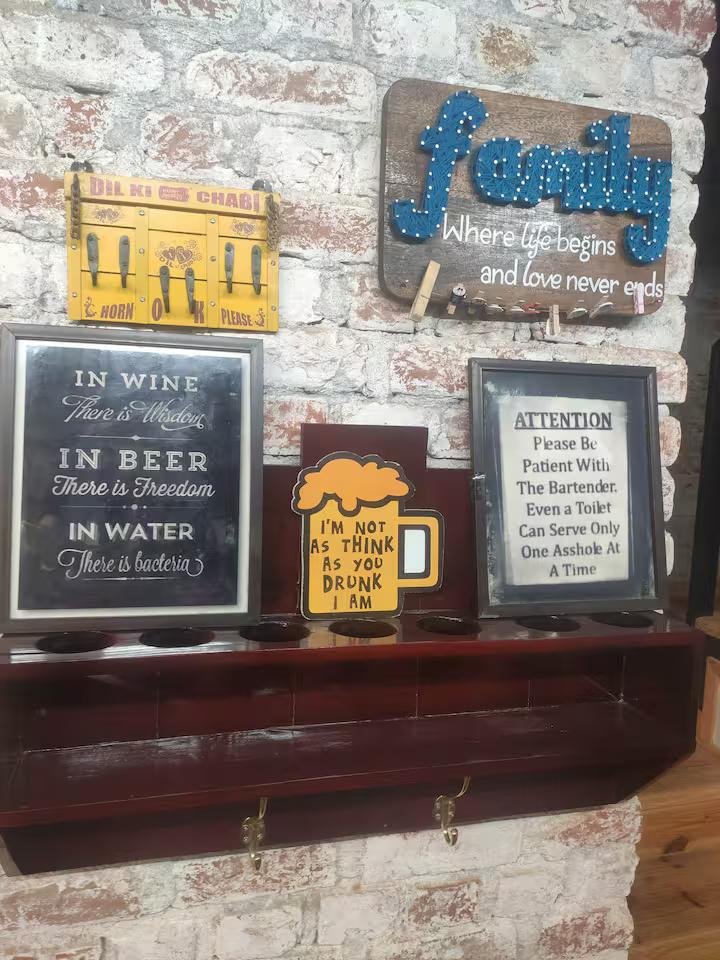 DIL KI CHABI
HORN O K PLEASE
family
Where life begins
and love never ends
IN WINE
There is Wisdom
IN BEER
There is Freedom
IN WATER
There is bacteria
I'M NOT
AS THINK
AS YOU
DRUNK
I AM
ATTENTION
Please Be
Patient With
The Bartender.
Even a Toilet
Can Serve Only
One Asshole At
A Time